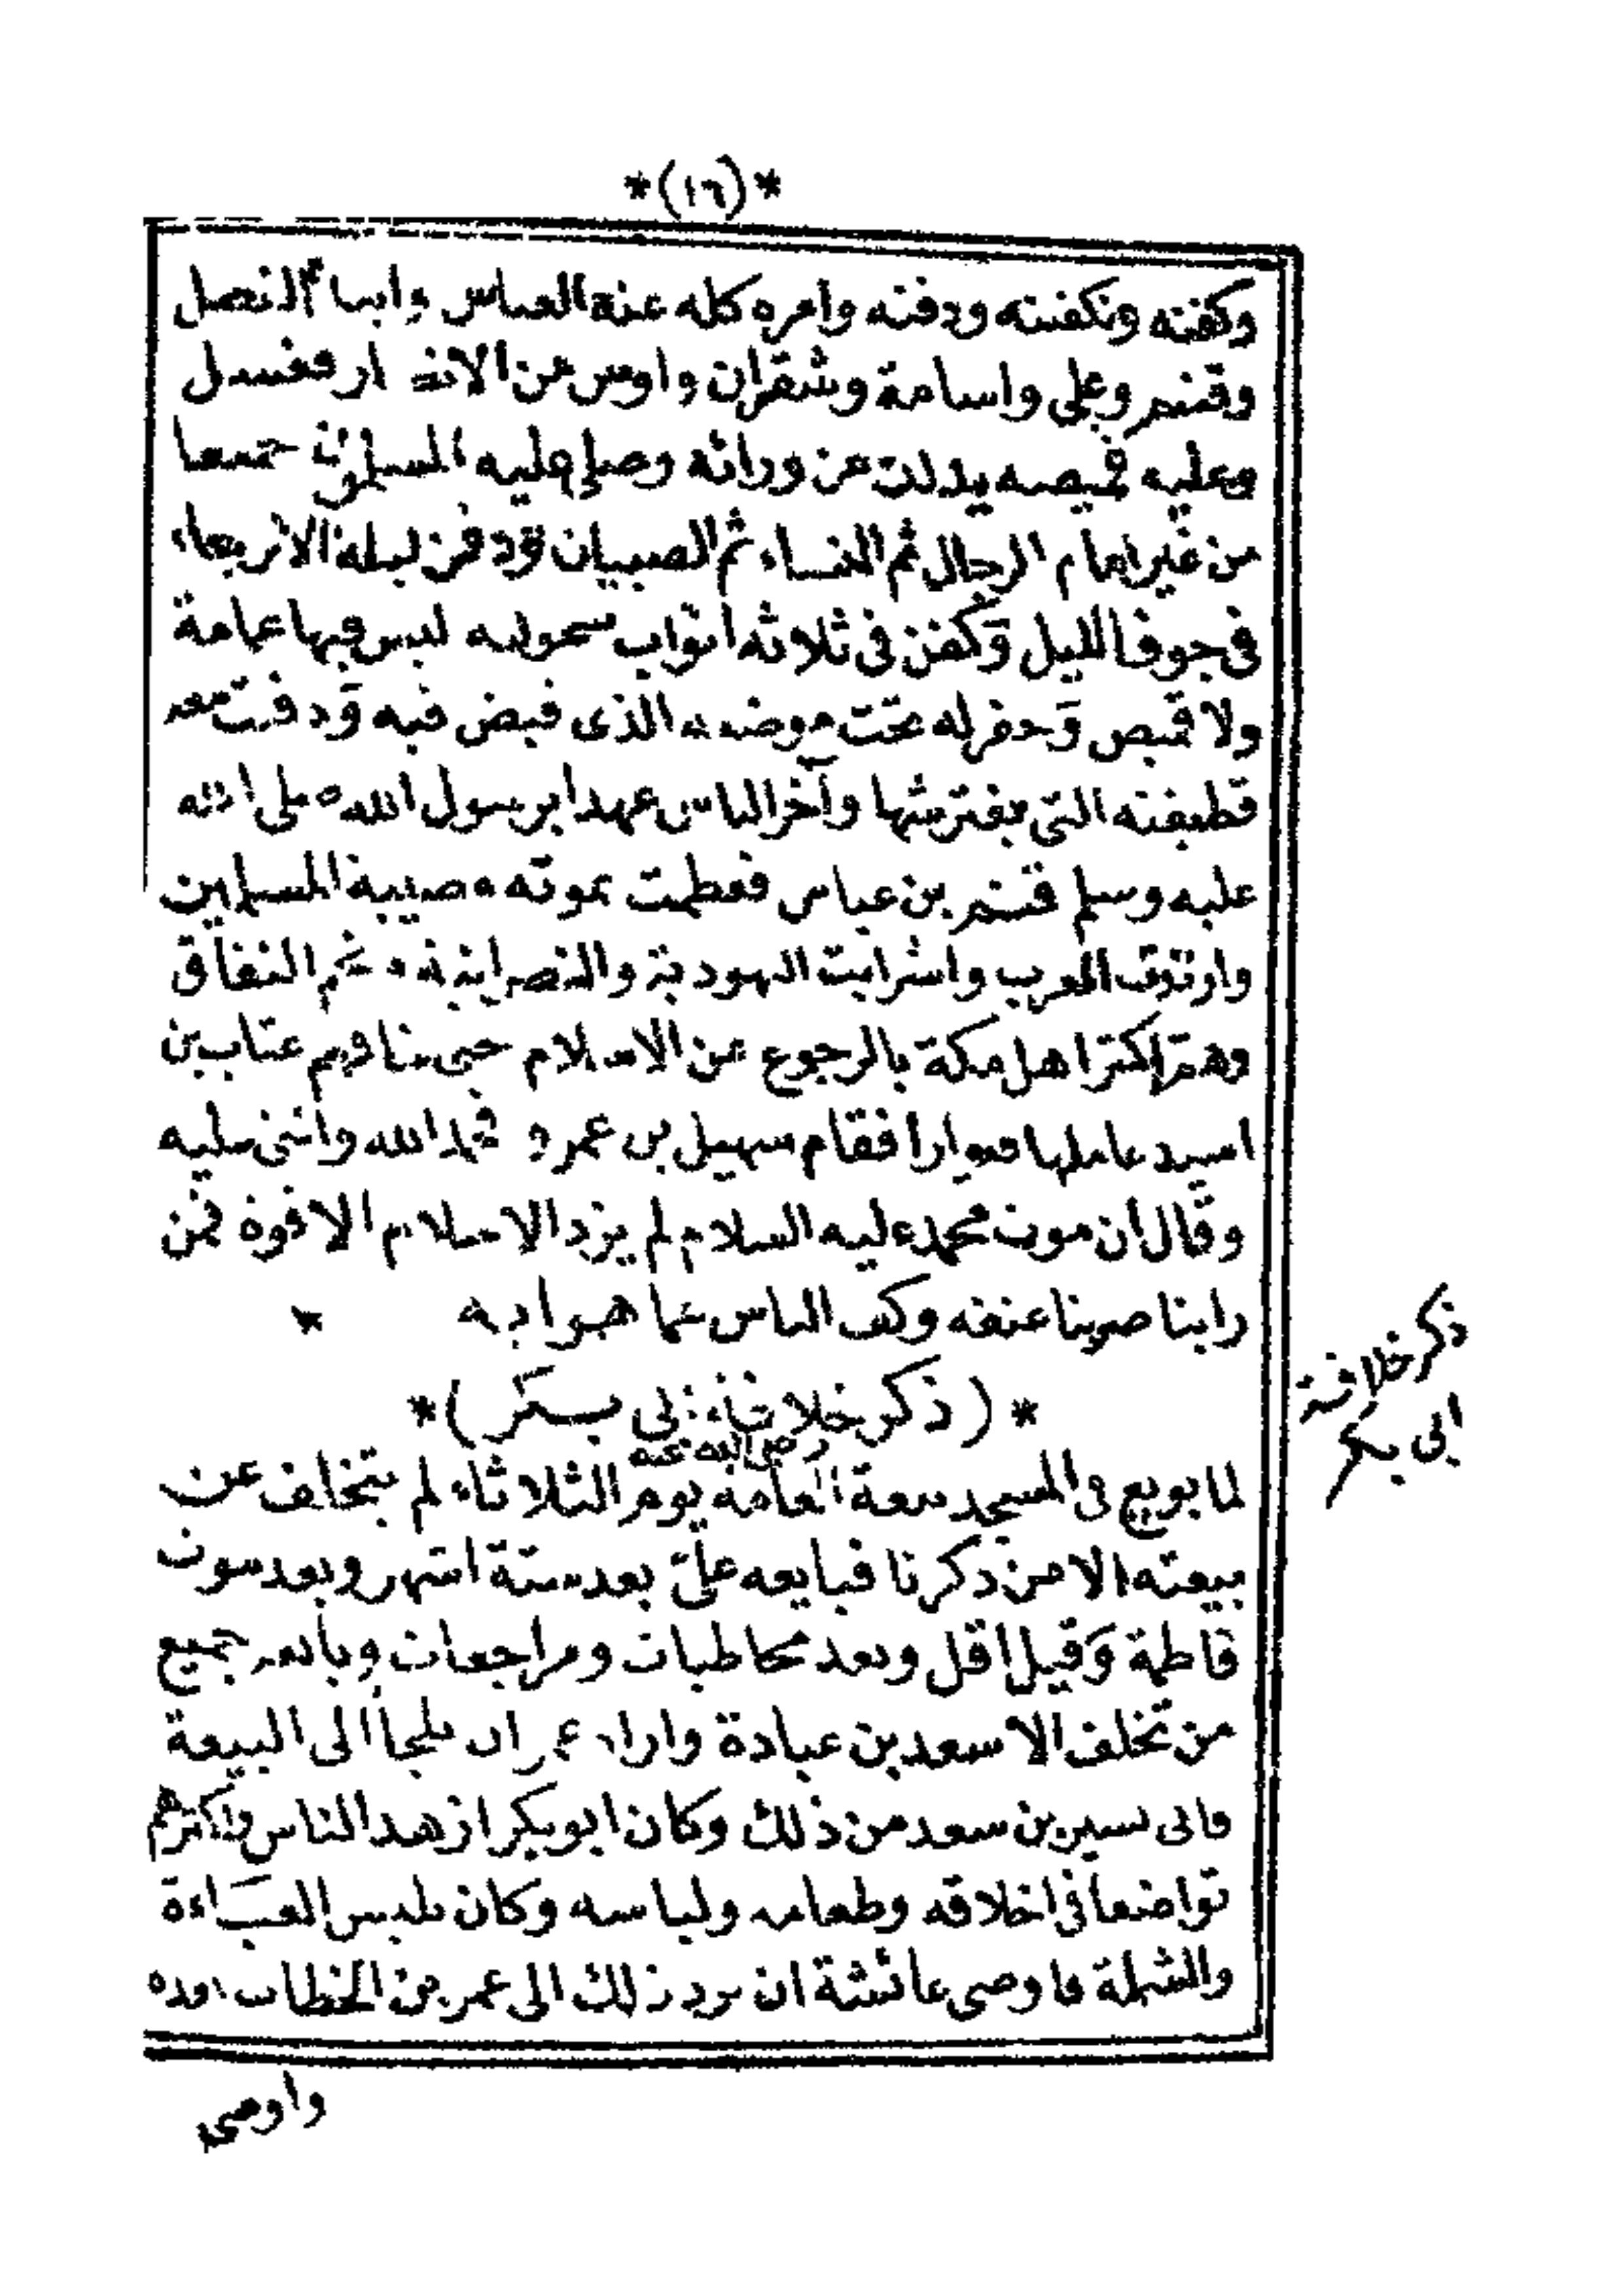 *(١٦)*
وكفنه وتكفينه ودفنه وامره كله عنه العباس وابناه الفضل
وقثم وعلى واسامة وشقران واوس من الانصار فغسل
وعليه قميصه يدلك من ورائه وصلى عليه المسلمون جميعا
من غير امام الرجال ثم النساء ثم الصبيان ودفن ليلة الاربعاء
فى جوف الليل وكفن فى ثلاثة اثواب سحوليه ليس فيها عمامة
ولا قميص وحفر له تحت موضعه الذى قبض فيه ودفنت معه
قطيفته التى يفترشها وآخر الناس عهدا برسول الله صلى الله
عليه وسلم قثم بن عباس فعظمت بموته مصيبة المسلمين
وارتدت العرب واشرابت اليهودية والنصرانية ونجم النفاق
وهم اكثر اهل مكة بالرجوع عن الاسلام حتى خافهم عتاب بن
اسيد عاملها فتوارا فقام سهيل بن عمرو فحمد الله واثنى عليه
وقال ان موت محمد عليه السلام لم يزد الاسلام الا قوة فمن
رابنا ضربنا عنقه وكف الناس عما هموا به *
*(ذكر خلافة ابى بكر)*
رضى الله عنه
ذكر خلافة
ابى بكر
لما بويع فى المسجد بيعة العامة يوم الثلاثاء لم يتخلف عن
بيعته الا من ذكرنا فبايعه علىّ بعد ستة اشهر وبعد موت
فاطمة وقيل اقل وبعد مخاطبات ومراجعات وبايعه جميع
من تخلف الا سعد بن عبادة واراد عمر ان يلجأ الى البيعة
فابى بشير بن سعد من ذلك وكان ابو بكر ازهد الناس واكثرهم
تواضعا فى اخلاقه وطعامه ولباسه وكان يلبس العباءة
والشملة فاوصى عائشة ان يرد ذلك الى عمر بن الخطاب بعده
واوصى